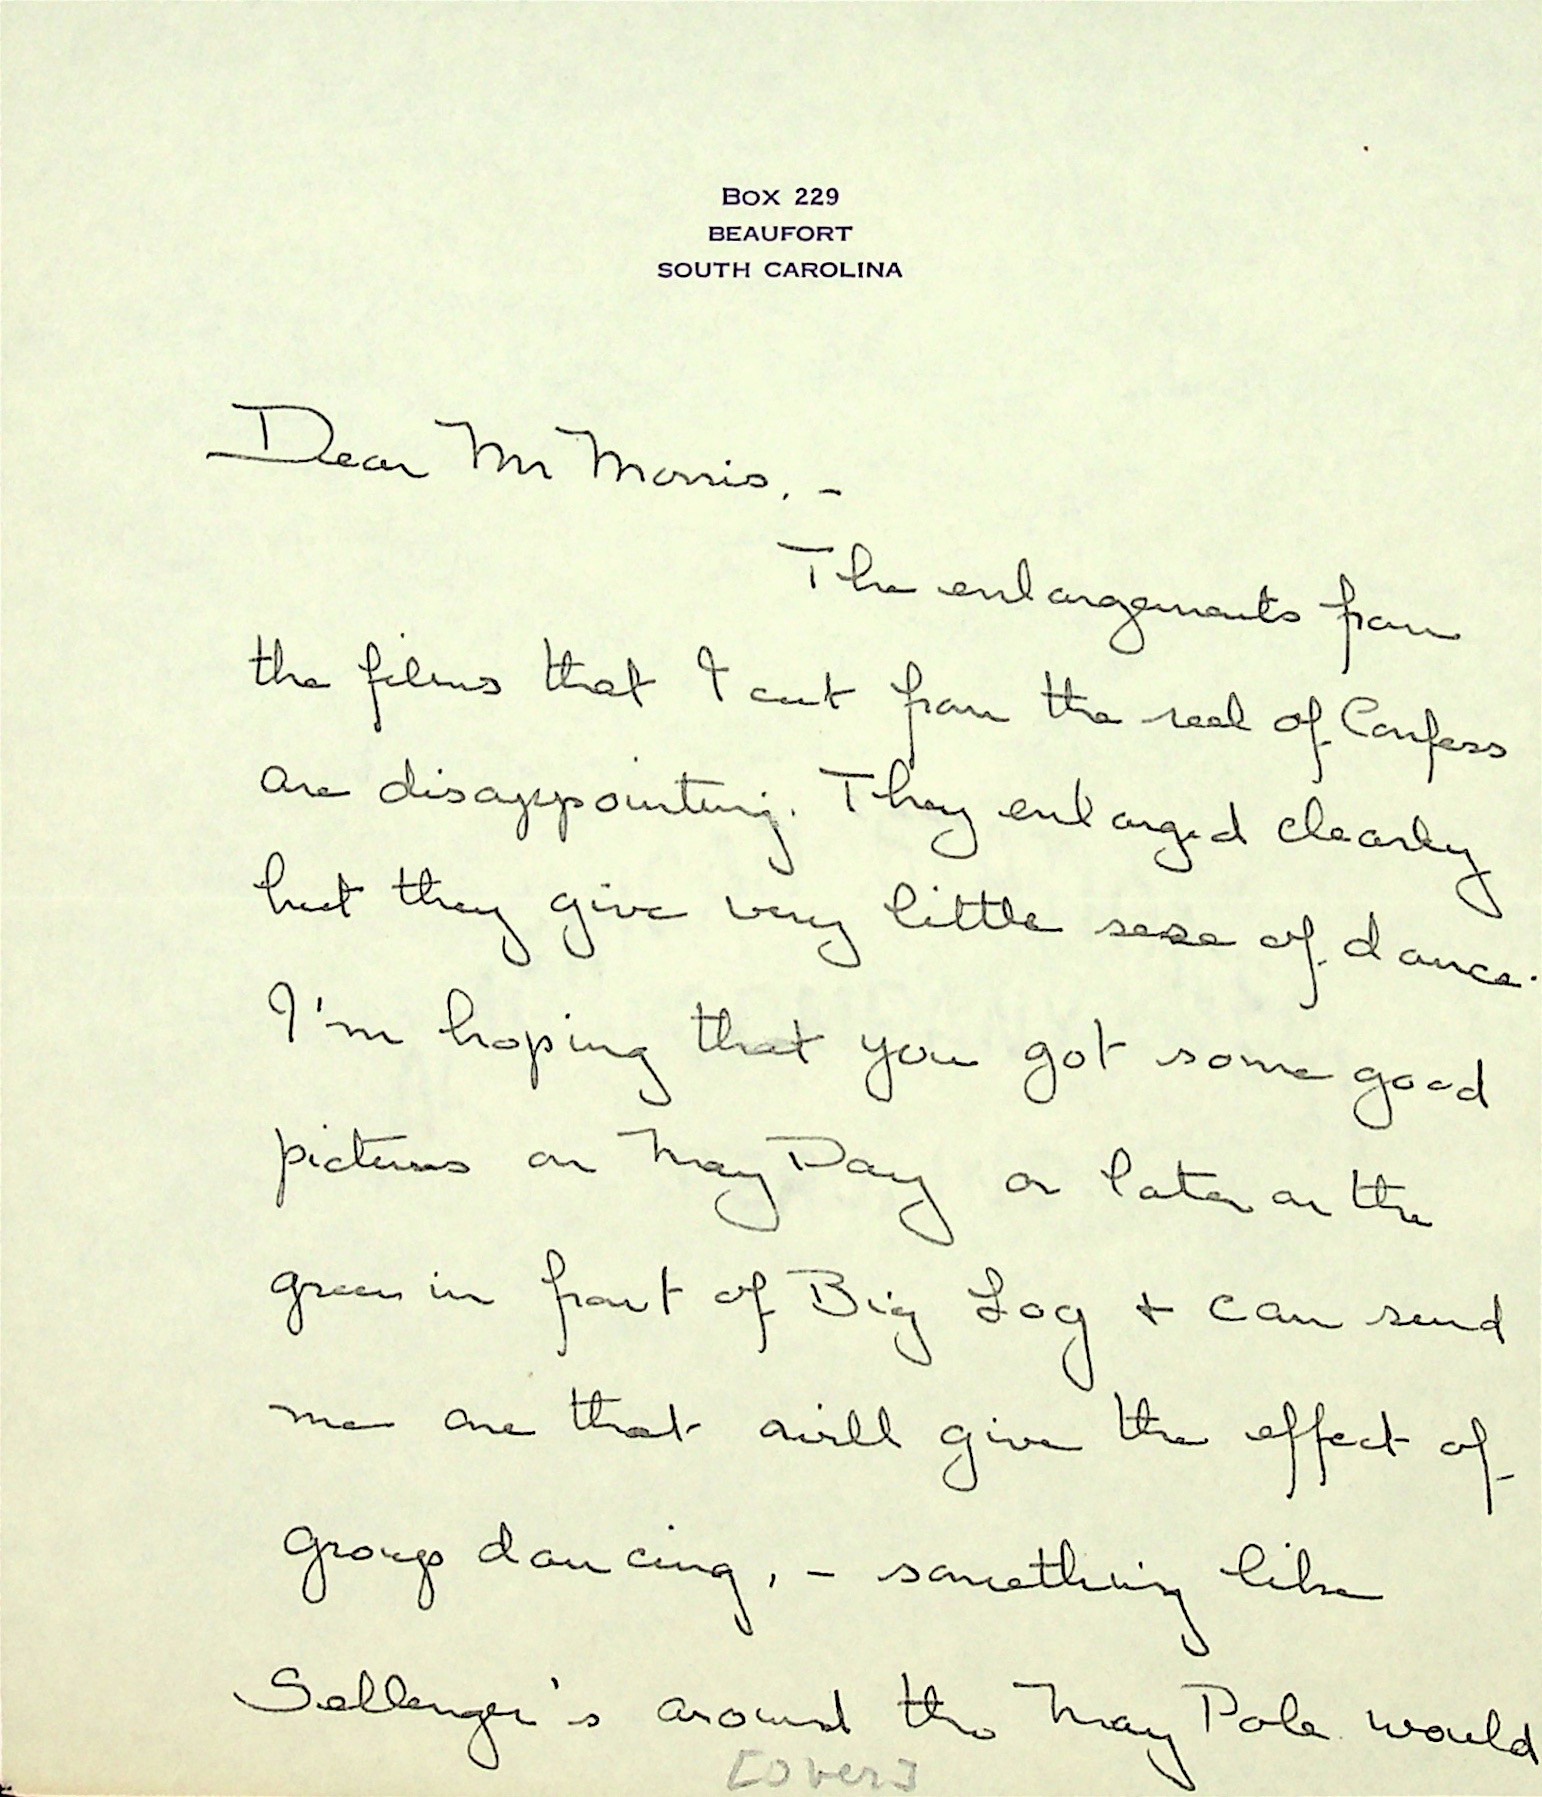 Box 229
BEAUFORT
SOUTH CAROLINA
Dear Mr Morris, -
The enlargements from
the films that I cut from the reel of Confess
are disappointing. They enlarged clearly
but they give very little sese of dance.
I'm hoping that you got some good
pictures on May Day or later on the
green in front of Big Log + can send
me one that will give the effect of
group dancing, - something like
Sellenger's around the May Pole would
[over]